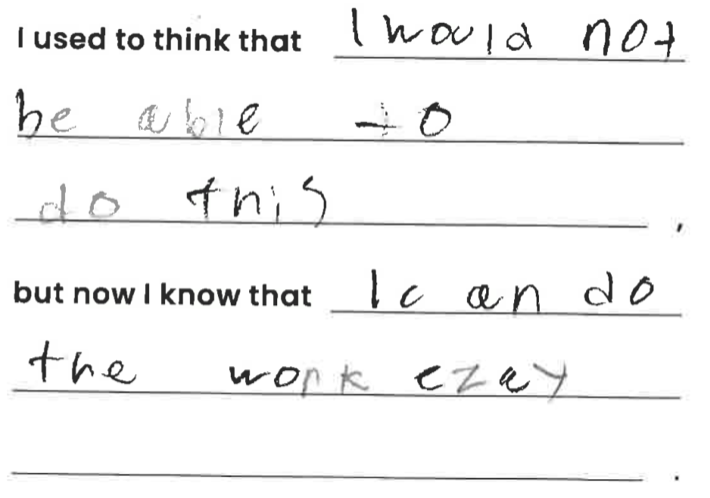 I used to think that I would not
be able to
do this ,
but now I know that I can do
the work ezay
.